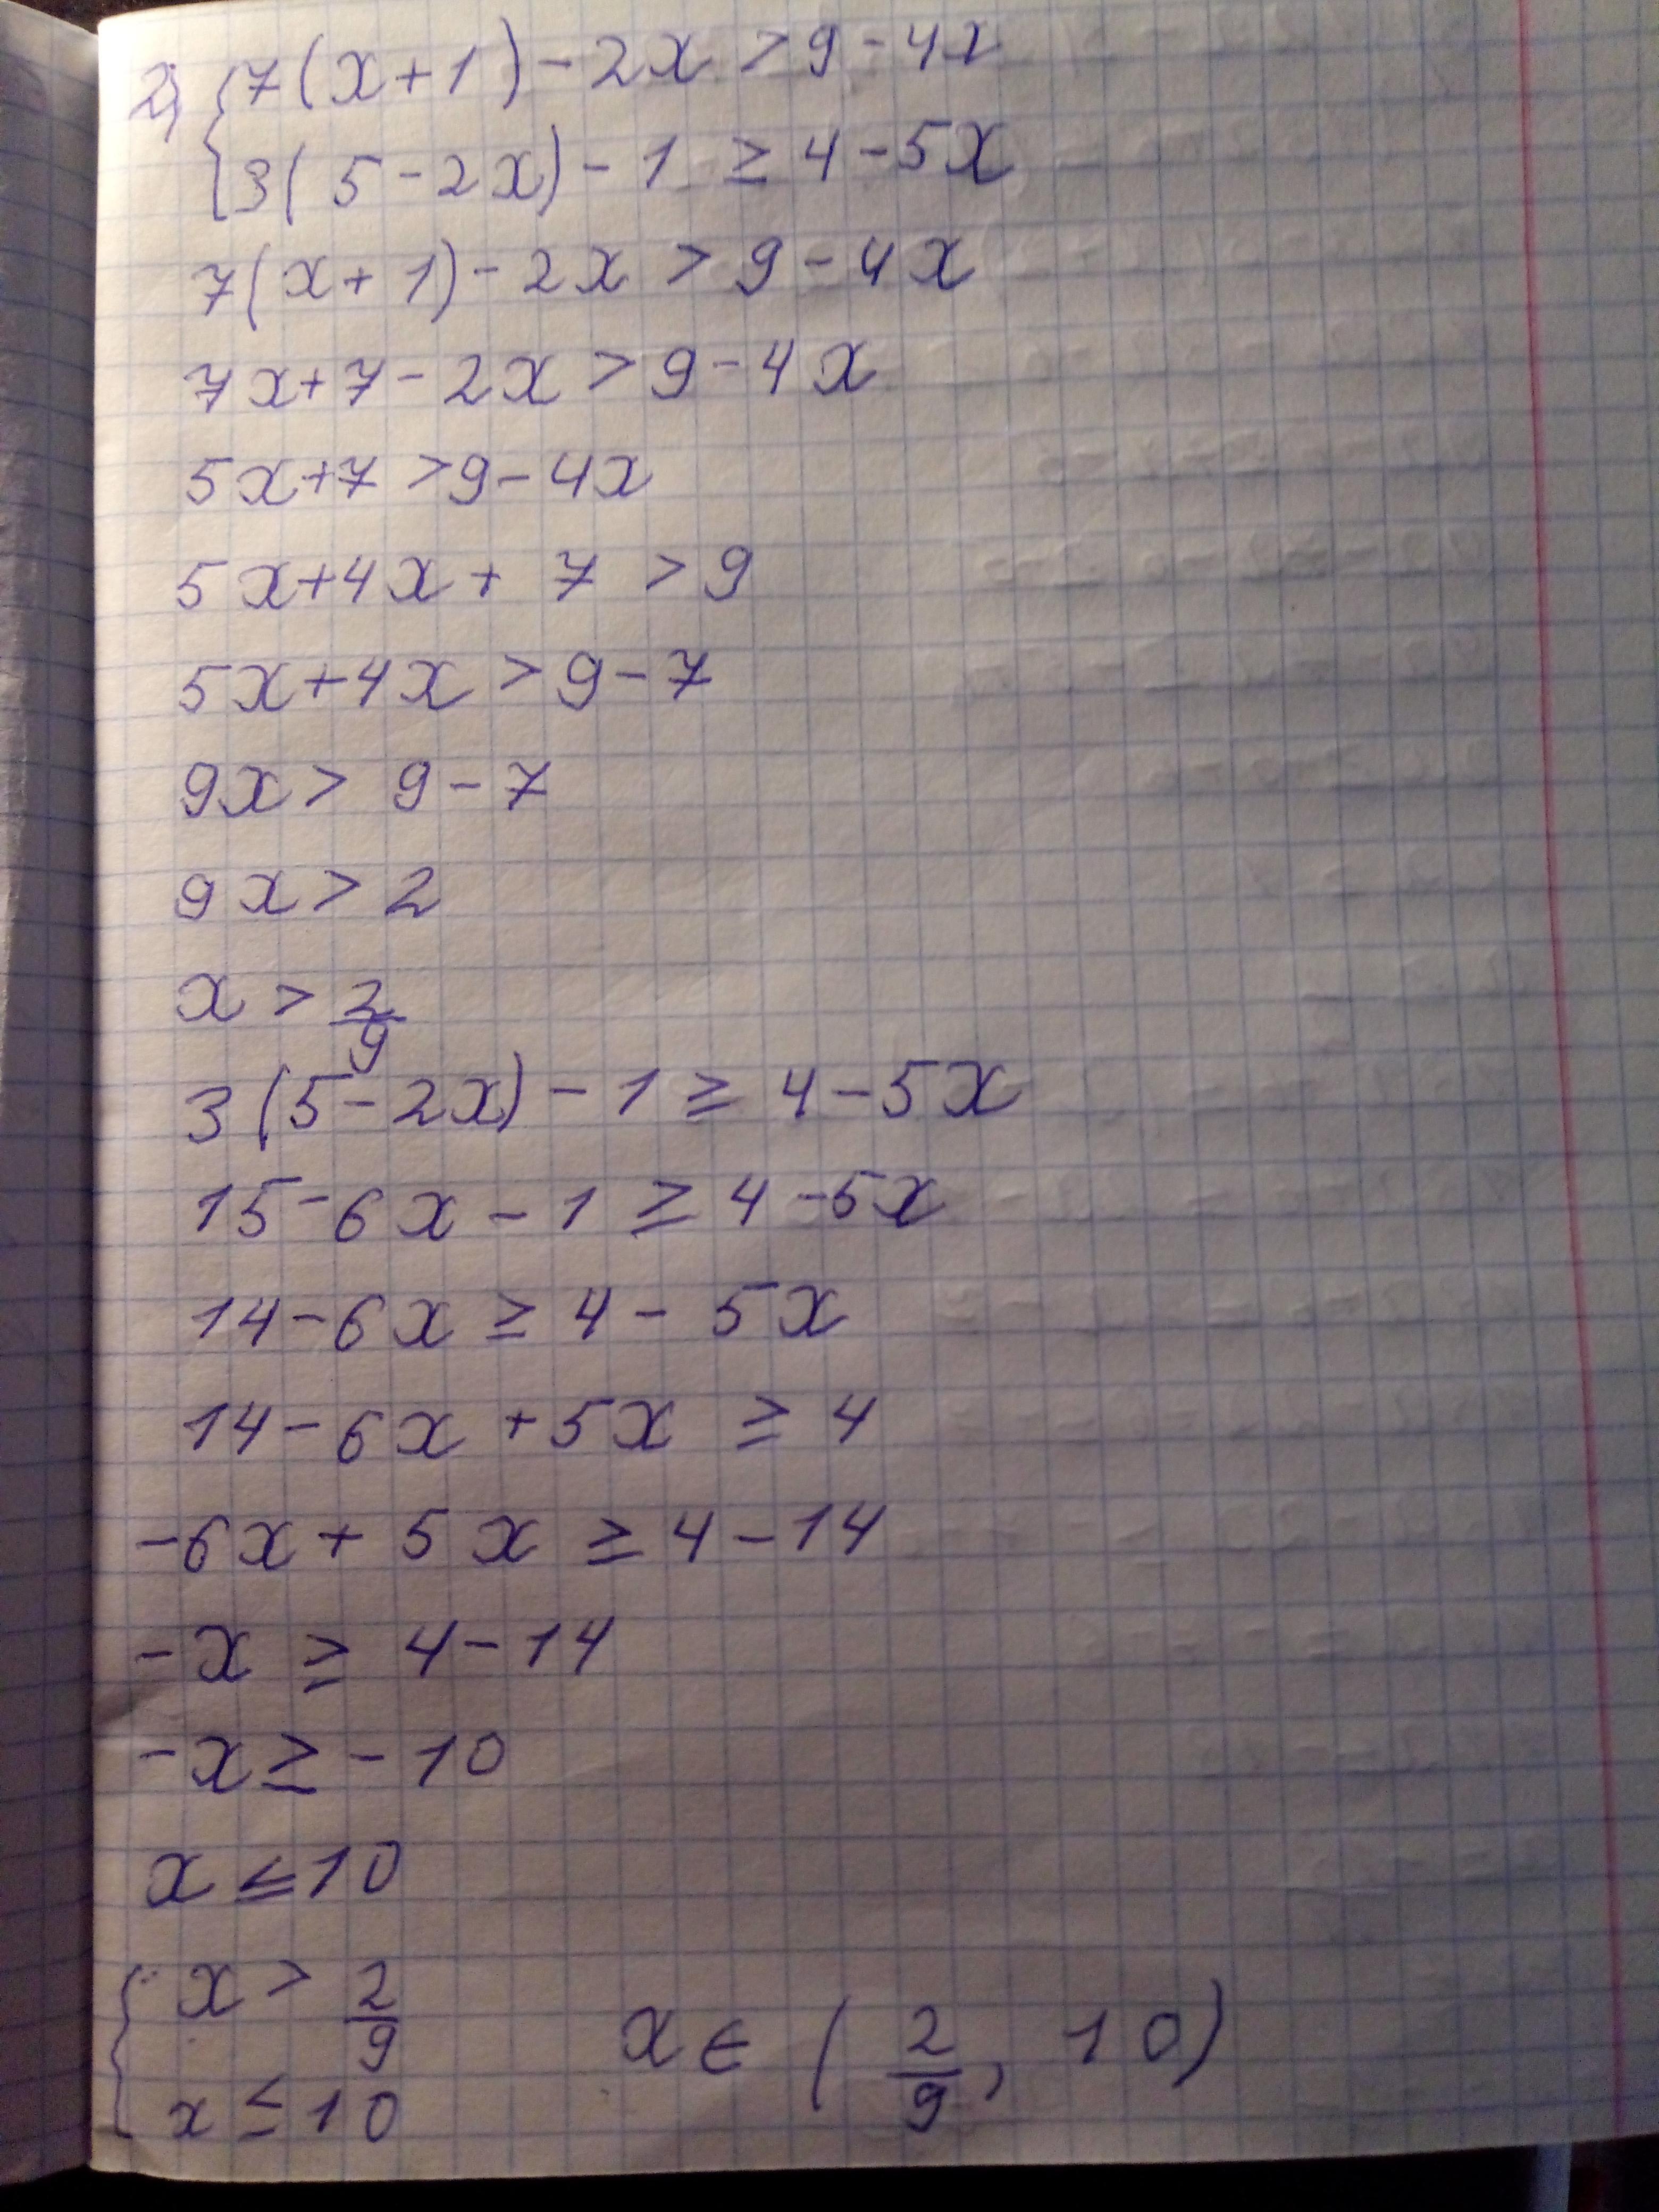 2) { 7(x+1)-2x > 9-4x
3(5-2x)-1 ≥ 4-5x
7(x+1)-2x > 9-4x
7x+7-2x > 9-4x
5x+7 > 9-4x
5x+4x+7 > 9
5x+4x > 9-7
9x > 9-7
9x > 2
x > 2/9
3(5-2x)-1 ≥ 4-5x
15-6x-1 ≥ 4-5x
14-6x ≥ 4-5x
14-6x+5x ≥ 4
-6x+5x ≥ 4-14
-x ≥ 4-14
-x ≥ -10
x ≤ 10
{ x > 2/9
x ≤ 10
x ∈ (2/9, 10)